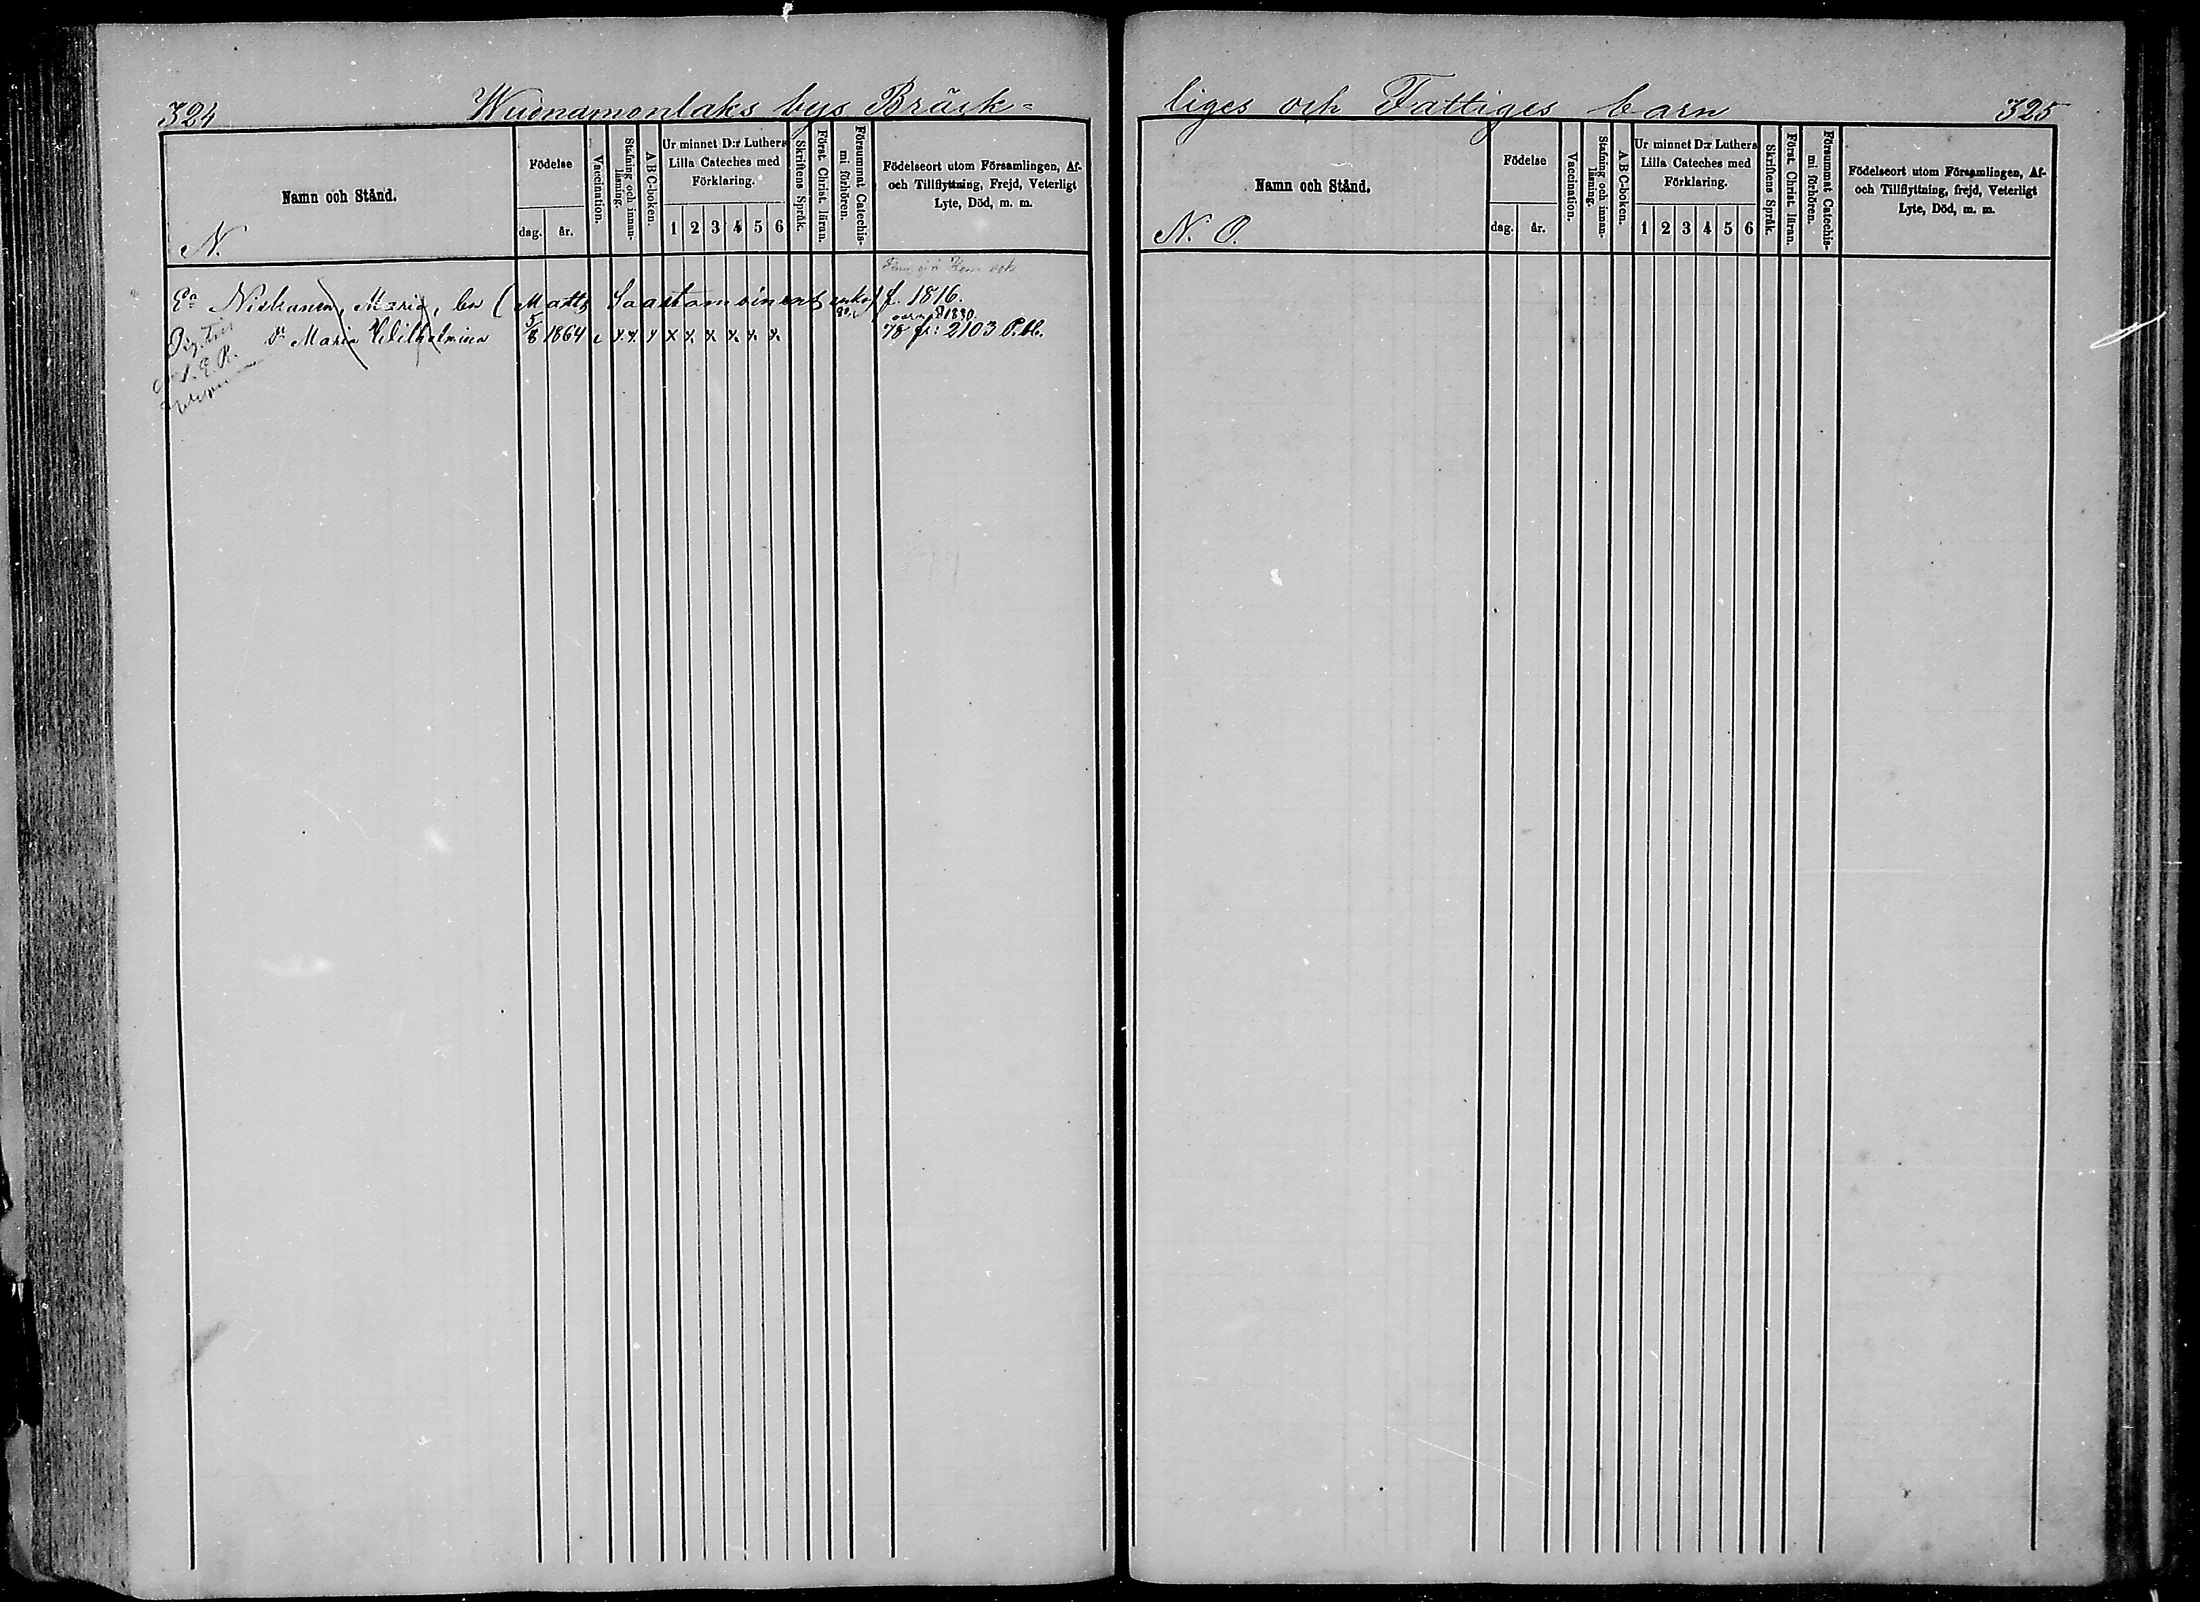 324
Wuonamonlaks bys Bräck-
Namn och Stånd.
Födelse
dag.
år.
Vaccination.
Stafning och innan-
läsning.
A B C-boken.
Ur minnet D:r Luthers
Lilla Cateches med
Förklaring.
1 2 3 4 5 6
Skriftens Språk.
Först. Christ. läran.
Försummat Catechis-
mi förhören.
Födelseort utom Församlingen, Af-
och Tillflyttning, Frejd, Veterligt
Lyte, Död, m. m.
N.
Ea Niskanen, Maria, (Matts Saastamoinens enka) f. 1816.
dr Maria Wilhelmina 5/8 1864 x x x x x x x x x 78 fr: 2103 P.B.
liges och Fattiges barn
325
Namn och Stånd.
Födelse
dag.
år.
Vaccination.
Stafning och innan-
läsning.
A B C-boken.
Ur minnet D:r Luthers
Lilla Cateches med
Förklaring.
1 2 3 4 5 6
Skriftens Språk.
Först. Christ. läran.
Försummat Catechis-
mi förhören.
Födelseort utom Församlingen, Af-
och Tillflyttning, frejd, Veterligt
Lyte, Död, m. m.
N. O.